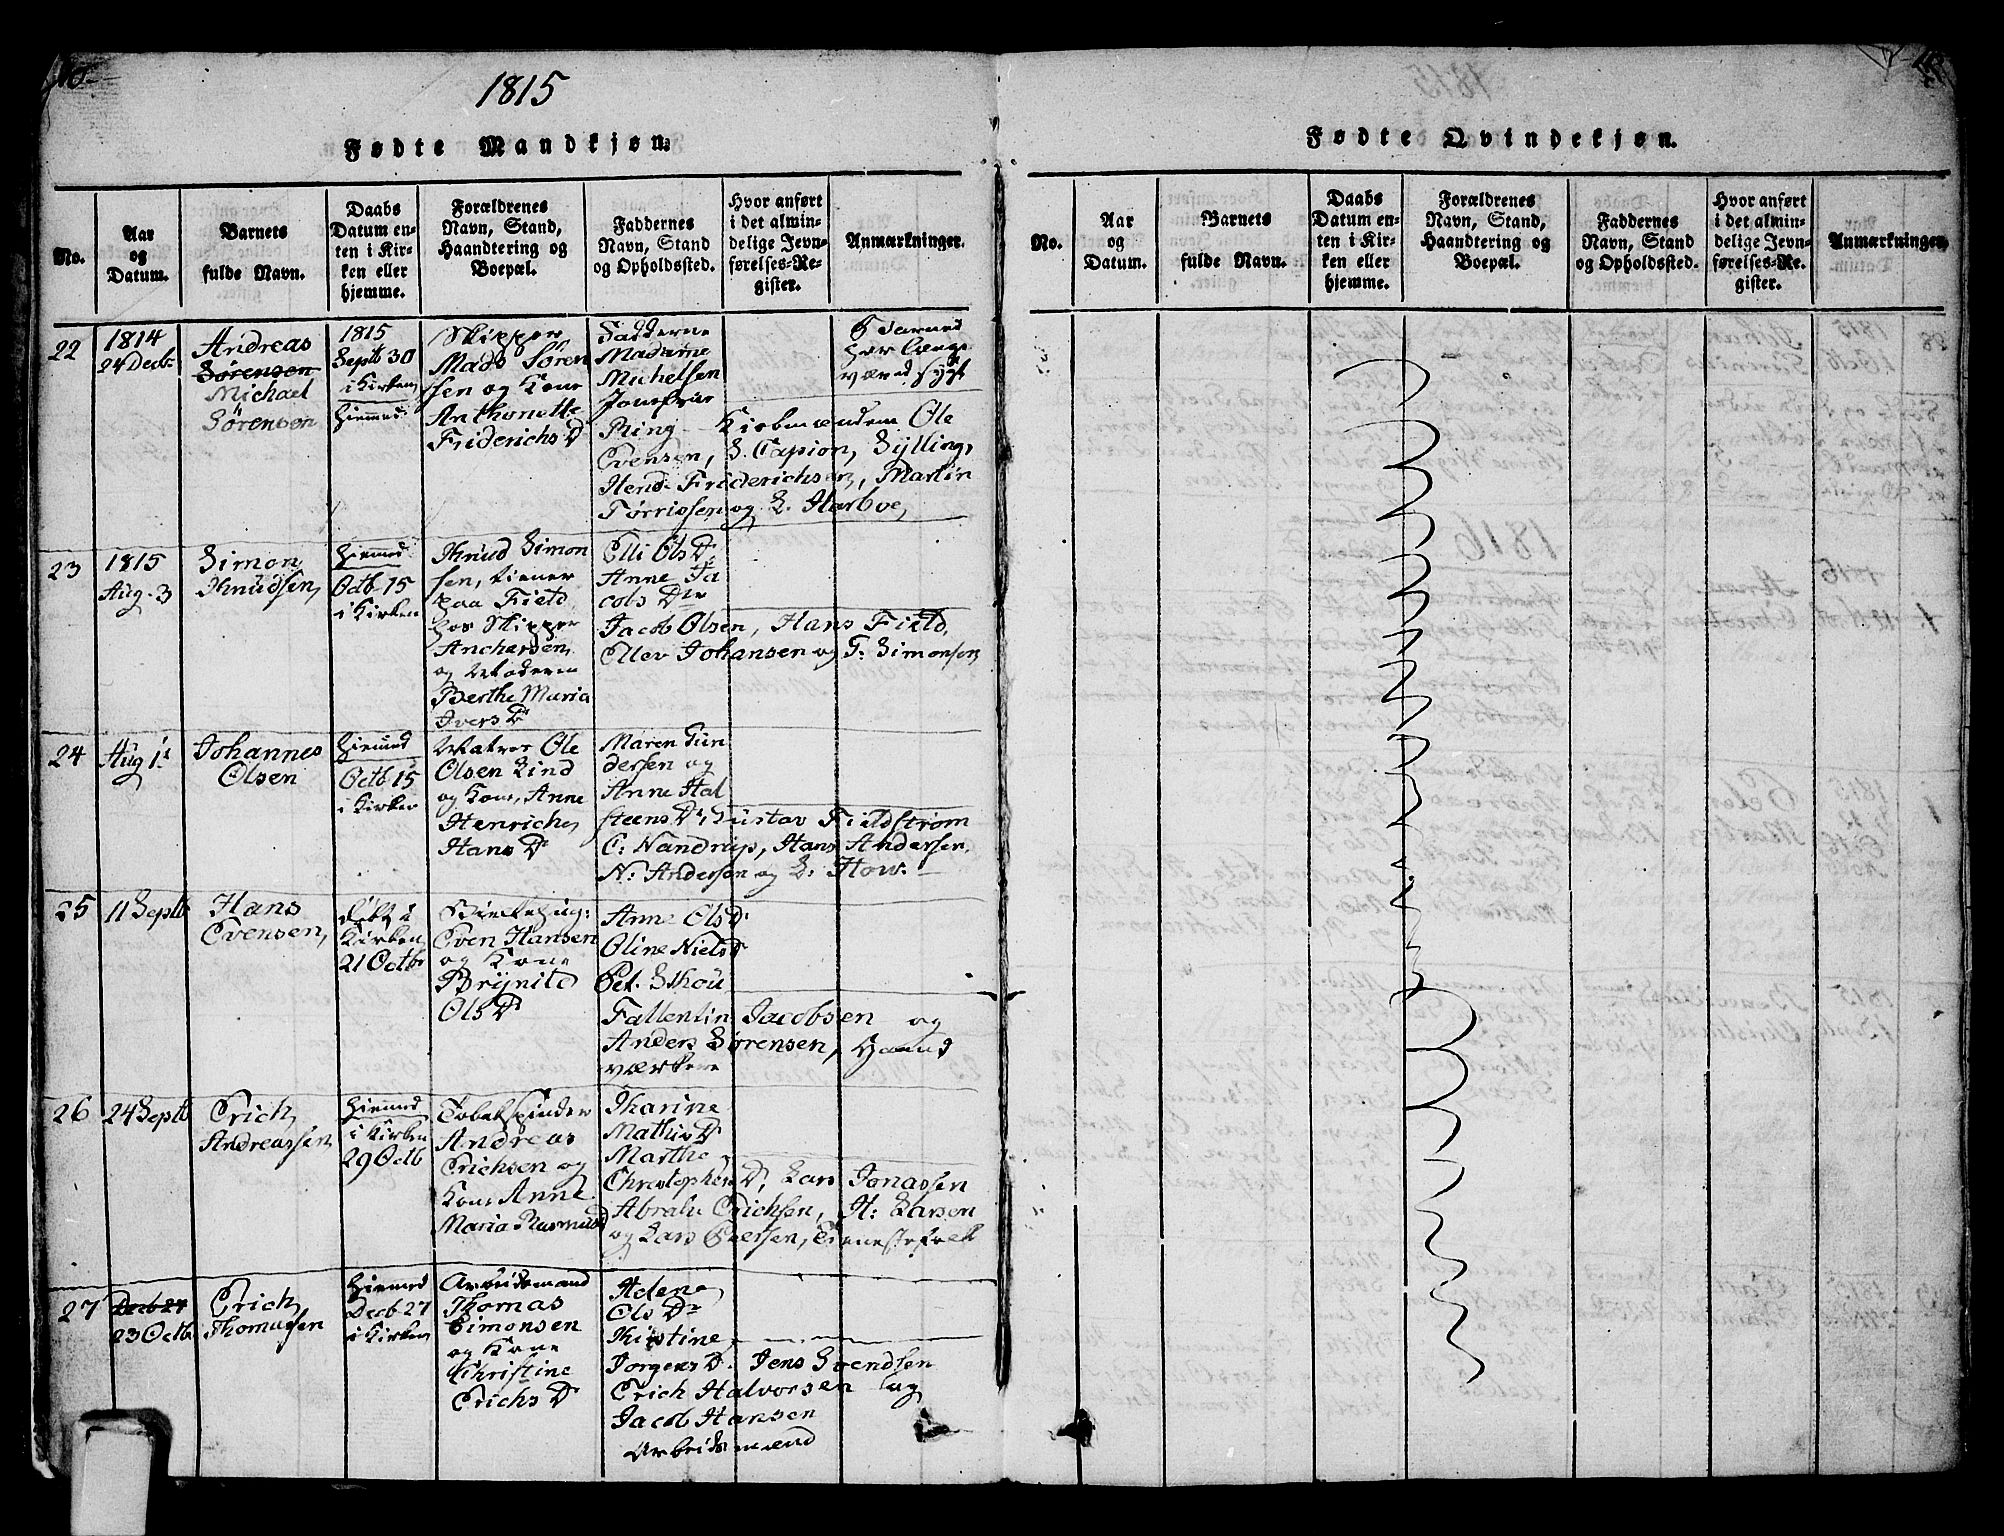 1815
Fødte Mandkjøn.
No.
Aar
og
Datum.
Barnets
fulde Navn.
Daabs
Datum en-
ten i Kir-
ken eller
hjemme.
Forældrenes
Navn, Stand,
Haandtering og
Boepæl.
Faddernes
Navn, Stand
og Opholdssted.
Hvor anført
i det almin-
delige Jevn-
førelses-Re-
gister.
Anmærkninger.
22
1814
24 Decbr
Andreas
Sørensen
Michael
Sørensen
1815
Septb 30
i Kirken
Hiemed
Skipper
Mads Søren
sen og Kone
Anthonette
Friderichs Dr
Fadderne
Madame
Michelsen
Jomfrue
Ring Kiøbmændene Ole
Evensen, S. Capion, Sylling,
Hend. Friderichsen, Martin
Tørrissen og L. Harboe,
Barned
har længe
væred sygt
23
1815
Aug. 3
Simon
Knudsen,
Hiemed
Octb 15
i Kirken
Knud Simon
sen, tiener
paa Field
hos Skipper
Anchersen,
og Moderen
Berthe Maria
Ivers Dr
Elli Ols Dr
Anne Ja
cobs Dtr
Jacob Olsen, Hans Field,
Ellev Johansen og T: Simonsen
24
Aug 1
Johannes
Olsen
Hiemed
Octb 15
i Kirken
Matros Ole
Olsen Lind
og Kone, Anne
Henriche
Hans Dr
Maren Gun
dersen og
Anne Hal
steens Dr, Gustav Fieldstrøm
C: Nandrup, Hans Andersen,
N: Andersen og L: How.
25
11 Septb
Hans
Evensen,
døbt i
Kirken
21 Octbr
Even Hansen
og Kone
Brynild
Ols Dr
Anne Ols Dr
Oline Niels Dr
Pet. Sthou
Fallentin Jacobsen og
Anders Sørensen, Haand
værkere
26
24 Septb
Erich
Andreassen
Hiemed
i Kirken
29 Octb
Andreas
Erichsen og
Kone Anne
Maria Rasmusd
Karine
Mathis Dr
Marthe
Christophers Dr, Lars Jonassen
Abrahe Erichsen, H: Larsen
og Lars Eversen, Tienestefolk
27
Decb 27
23 Octb
Erich
Thomassen
Hiemed
Decb 27
i Kirken
Arbeidsmand
Thomas
Simonsen
og Kone
Christine
Erichs Dr
Helene
Ols Dr
Kristine
Jorgens D. Jens Svendsen
Erich Halvorsen og
Jacob Hansen
Arbeidsmænd
Fødte Qvindekjøn.
No.
Aar
og
Datum.
Barnets
fulde Navn.
Daabs
Datum en-
ten i Kir-
ken eller
hjemme.
Forældrenes
Navn, Stand,
Haandtering og
Boepæl.
Faddernes
Navn, Stand
og Opholdssted.
Hvor anført
i det almin-
delige Jevn-
førelses-Re-
gister.
Anmærkninger.